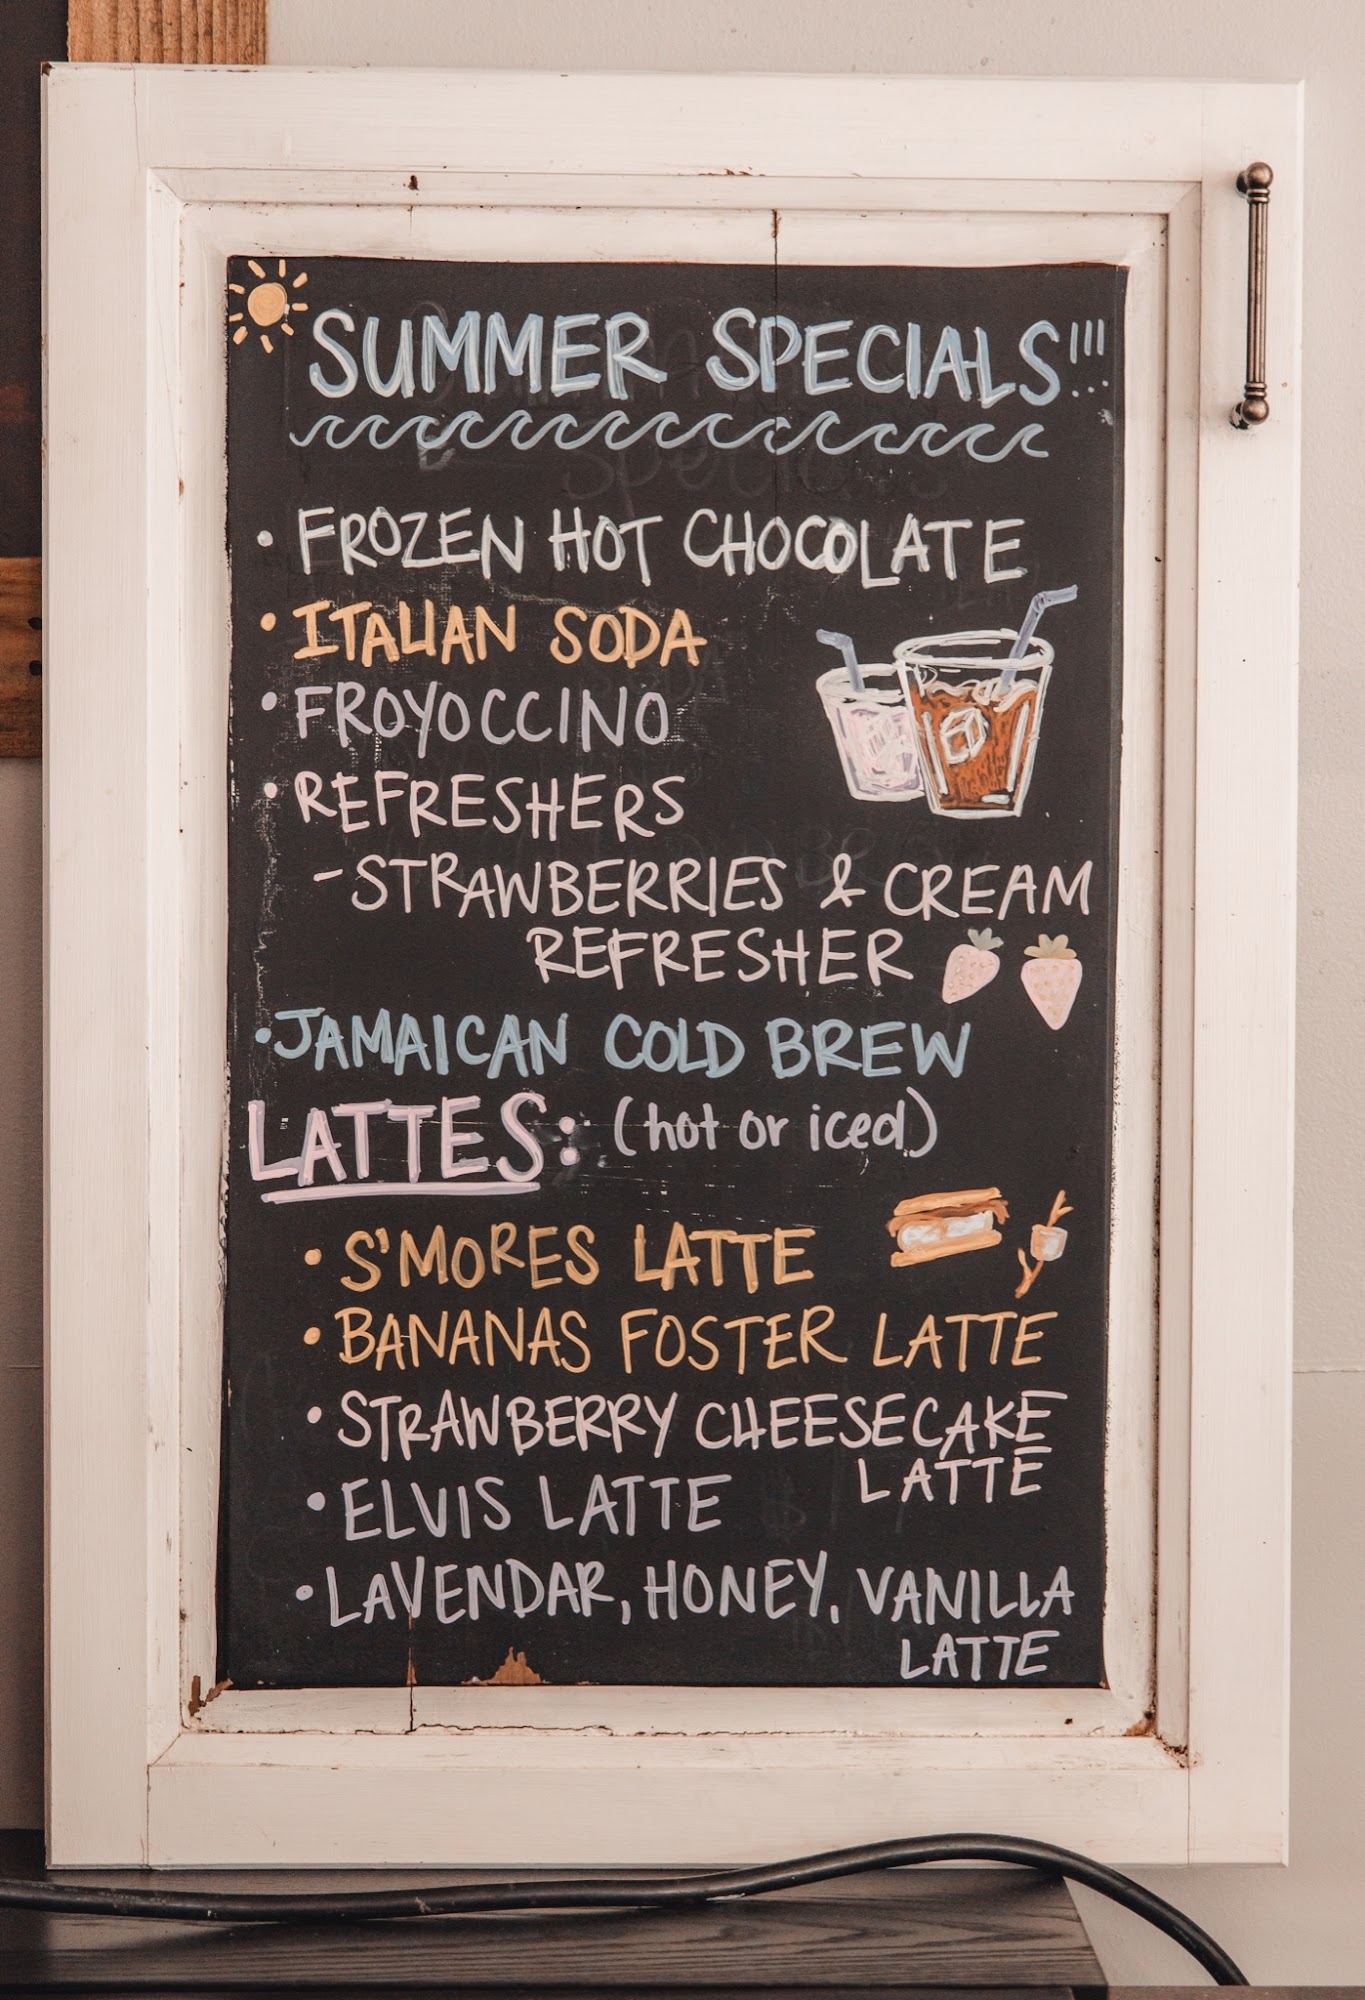 SUMMER SPECIALS!!!
• FROZEN HOT CHOCOLATE
• ITALIAN SODA
• FROYOCCINO
• REFRESHERS
- STRAWBERRIES & CREAM
REFRESHER
• JAMAICAN COLD BREW
LATTES: (hot or iced)
• S'MORES LATTE
• BANANAS FOSTER LATTE
• STRAWBERRY CHEESECAKE
LATTE
• ELVIS LATTE
• LAVENDAR, HONEY, VANILLA
LATTE